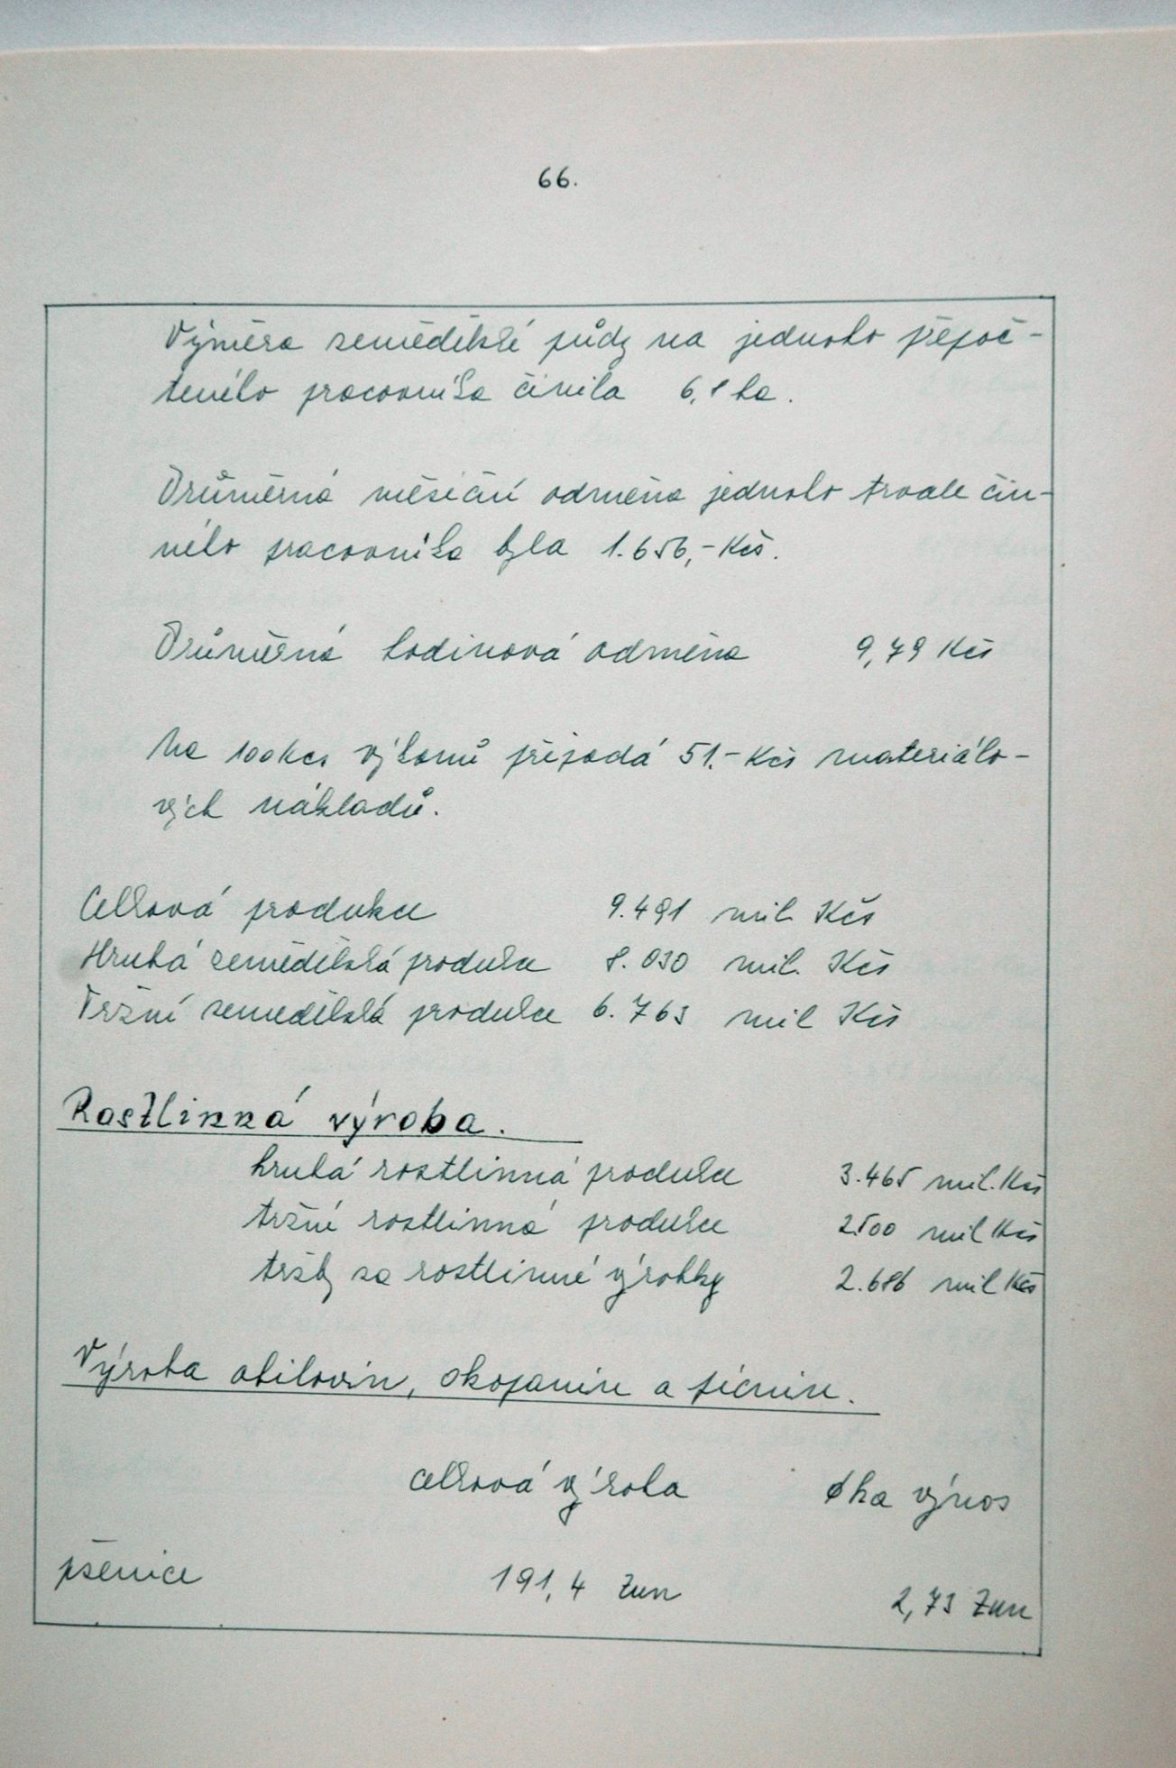 66.
Výměra zemědělské půdy na jednoho přepoč-
teného pracovníka činila 6,1 ha.
Průměrná měsíční odměna jednoho trvale čin-
ného pracovníka byla 1.656,- Kčs.
Průměrná hodinová odměna 9,79 Kčs
Na 100 Kčs výkonů připadá 51.- Kčs materiálo-
vých nákladů.
Celková produkce 9.491 mil. Kčs
Hrubá zemědělská produkce 8.030 mil. Kčs
Tržní zemědělská produkce 6.763 mil Kčs
Rostlinná výroba.
hrubá rostlinná produkce 3.465 mil. Kčs
tržní rostlinná produkce 2500 mil Kčs
tržby za rostlinné výrobky 2.686 mil Kčs
Výroba obilovin, okopanin a pícnin.
celková výroba ϕ ha výnos
pšenice 191,4 tun 2,73 tun